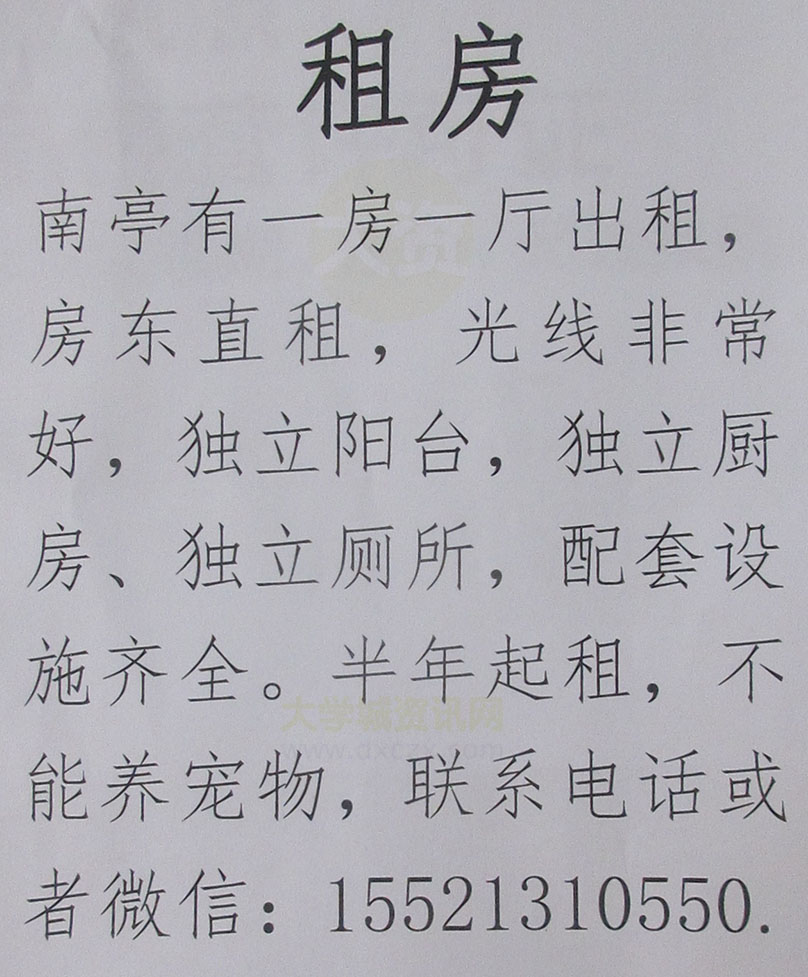 租房
南亭有一房一厅出租，
房东直租，光线非常
好，独立阳台，独立厨
房、独立厕所，配套设
施齐全。半年起租，不
大学城资讯网
www.dxczx.com
能养宠物，联系电话或
者微信：15521310550.